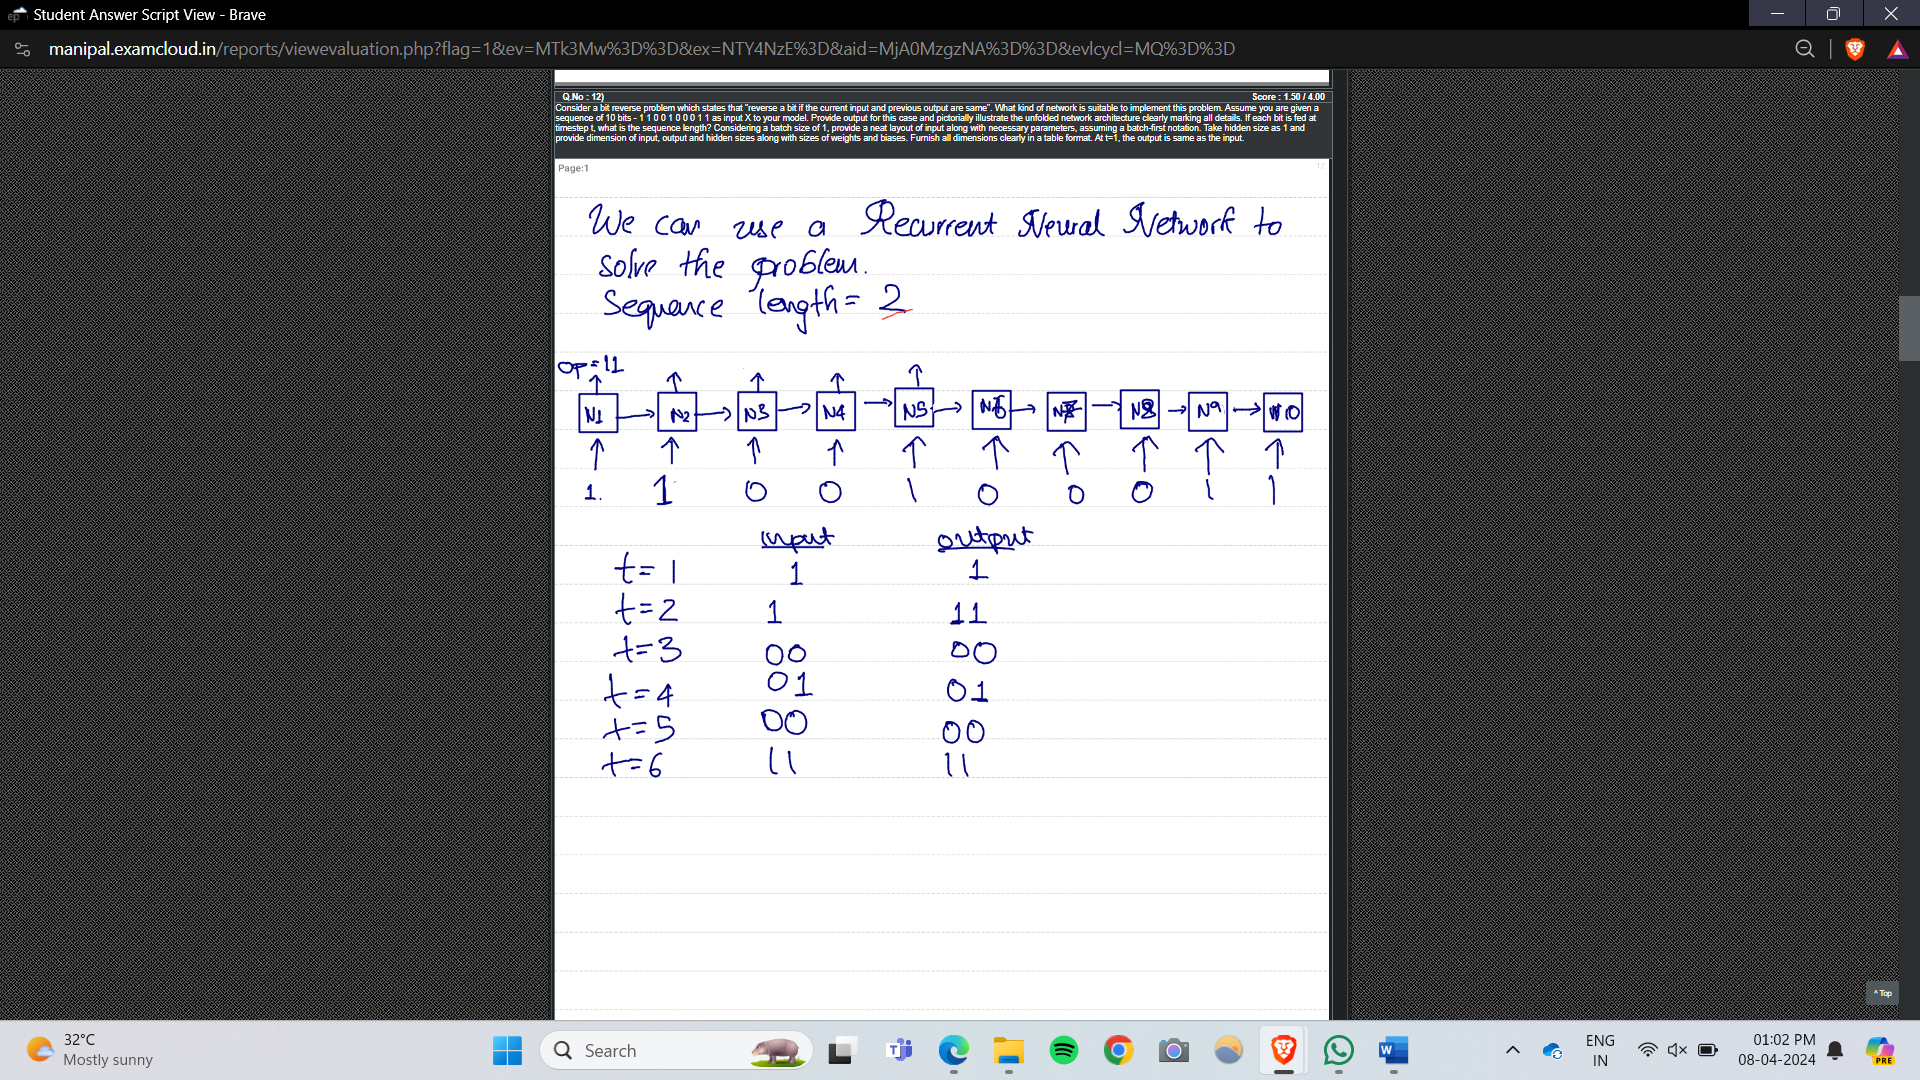 Student Answer Script View - Brave
manipal.examcloud.in/reports/viewevaluation.php?flag=1&ev=MTk3Mw%3D%3D&ex=NTY4NzE%3D&aid=MjA0MzgzNA%3D%3D&evlcycl=MQ%3D%3D
Q.No : 12) Score : 1.50 / 4.00
Consider a bit reverse problem which states that "reverse a bit if the current input and previous output are same". What kind of network is suitable to implement this problem. Assume you are given a
sequence of 10 bits - 1 1 0 0 1 0 0 0 1 1 as input X to your model. Provide output for this case and pictorially illustrate the unfolded network architecture clearly marking all details. If each bit is fed at
timestep t, what is the sequence length? Considering a batch size of 1, provide a neat layout of input along with necessary parameters, assuming a batch-first notation. Take hidden size as 1 and
provide dimension of input, output and hidden sizes along with sizes of weights and biases. Furnish all dimensions clearly in a table format. At t=1, the output is same as the input.
Page:1 12
We can use a Recurrent Neural Network to
solve the problem.
Sequence length = 2
OP = 11
N1 N2 N3 N4 N5 N6 N7 N8 N9 N10
1. 1 0 0 1 0 0 0 1 1
input output
t= 1 1 1
t=2 1 11
t=3 00 00
t=4 01 01
t=5 00 00
t=6 11 11
^ Top
32°C
Mostly sunny
Search
ENG
IN
01:02 PM
08-04-2024
PRE